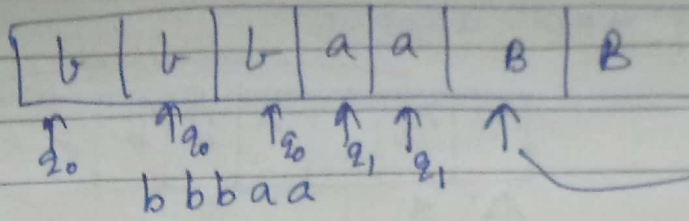 b b b a a B B
q₀ q₀ q₀ q₁ q₁
b b b a a